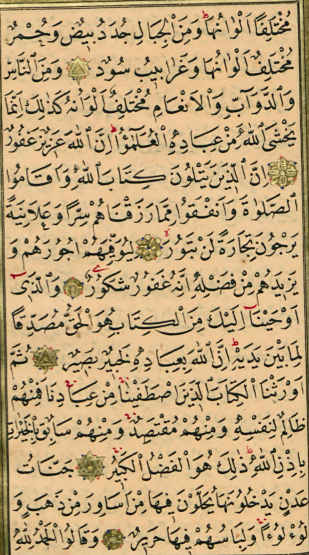 مُخْتَلِفًا اَلْوَانُهَا وَمِنَ الْجِبَالِ جُدَدٌ بِيضٌ وَحُمْرٌ
مُخْتَلِفٌ اَلْوَانُهَا وَغَرَابِيبُ سُودٌ وَمِنَ النَّاسِ
وَالدَّوَآبِّ وَالْاَنْعَامِ مُخْتَلِفٌ اَلْوَانُهُ كَذٰلِكَ اِنَّمَا
يَخْشَى اللّٰهَ مِنْ عِبَادِهِ الْعُلَمٰٓؤُا اِنَّ اللّٰهَ عَزِيزٌ غَفُورٌ
اِنَّ الَّذِينَ يَتْلُونَ كِتَابَ اللّٰهِ وَاَقَامُوا
الصَّلٰوةَ وَاَنْفَقُوا مِمَّا رَزَقْنَاهُمْ سِرًّا وَعَلَانِيَةً
يَرْجُونَ تِجَارَةً لَنْ تَبُورَ لِيُوَفِّيَهُمْ اُجُورَهُمْ وَ
يَزِيدَهُمْ مِنْ فَضْلِهِ اِنَّهُ غَفُورٌ شَكُورٌ وَالَّذِى
اَوْحَيْنَا اِلَيْكَ مِنَ الْكِتَابِ هُوَ الْحَقُّ مُصَدِّقًا
لِمَا بَيْنَ يَدَيْهِ اِنَّ اللّٰهَ بِعِبَادِهِ لَخَبِيرٌ بَصِيرٌ ثُمَّ
اَوْرَثْنَا الْكِتَابَ الَّذِينَ اصْطَفَيْنَا مِنْ عِبَادِنَا فَمِنْهُمْ
ظَالِمٌ لِنَفْسِهِ وَمِنْهُمْ مُقْتَصِدٌ وَمِنْهُمْ سَابِقٌ بِالْخَيْرَاتِ
بِاِذْنِ اللّٰهِ ذٰلِكَ هُوَ الْفَضْلُ الْكَبِيرُ جَنَّاتُ
عَدْنٍ يَدْخُلُونَهَا يُحَلَّوْنَ فِيهَا مِنْ اَسَاوِرَ مِنْ ذَهَبٍ وَ
لُؤْلُؤًا وَلِبَاسُهُمْ فِيهَا حَرِيرٌ وَقَالُوا الْحَمْدُ لِلّٰهِ